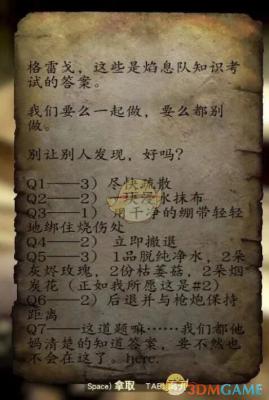 格雷戈，这些是焰息队知识考
试的答案。
我们要么一起做，要么都别
做。
别让别人发现，好吗？
Q1——3）尽快疏散
Q2——2）一块浸水抹布
Q3——1）用干净的绷带轻轻
地绑住烧伤处
Q4——2）立即撤退
Q5——3）1品脱纯净水，2朵
灰烬玫瑰，2份枯萎菇，2朵烟
炭花（正如我所愿这是#2）
Q6——2）后退并与枪炮保持
距离
Q7——这道题嘛……我们都他
妈清楚的知道答案，要不然也
不会在这了。here.
Space) 拿取 TAB) 离开
3DMGAME